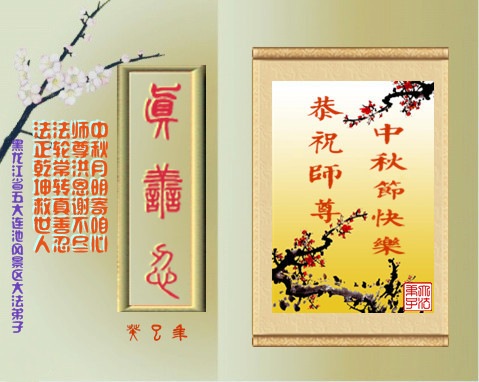 眞善忍
癸巳年
中秋月明寄咱心
师尊洪恩谢不尽
法轮常转真善忍
法正乾坤救世人
黑龙江省五大连池风景区大法弟子
恭祝師尊
中秋節快樂
大法
弟子